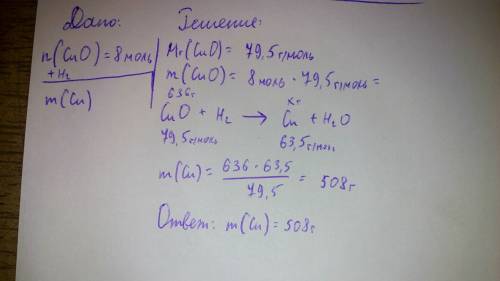 Дано: Решение:
n(CuO) = 8 моль
+ H₂
m(Cu)
Mr(CuO) = 79,5 г/моль
m(CuO) = 8 моль · 79,5 г/моль =
636г xг
CuO + H₂ → Cu + H₂O
79,5 г/моль 63,5 г/моль
m(Cu) = 636 · 63,5 / 79,5 = 508 г
Ответ: m(Cu) = 508 г